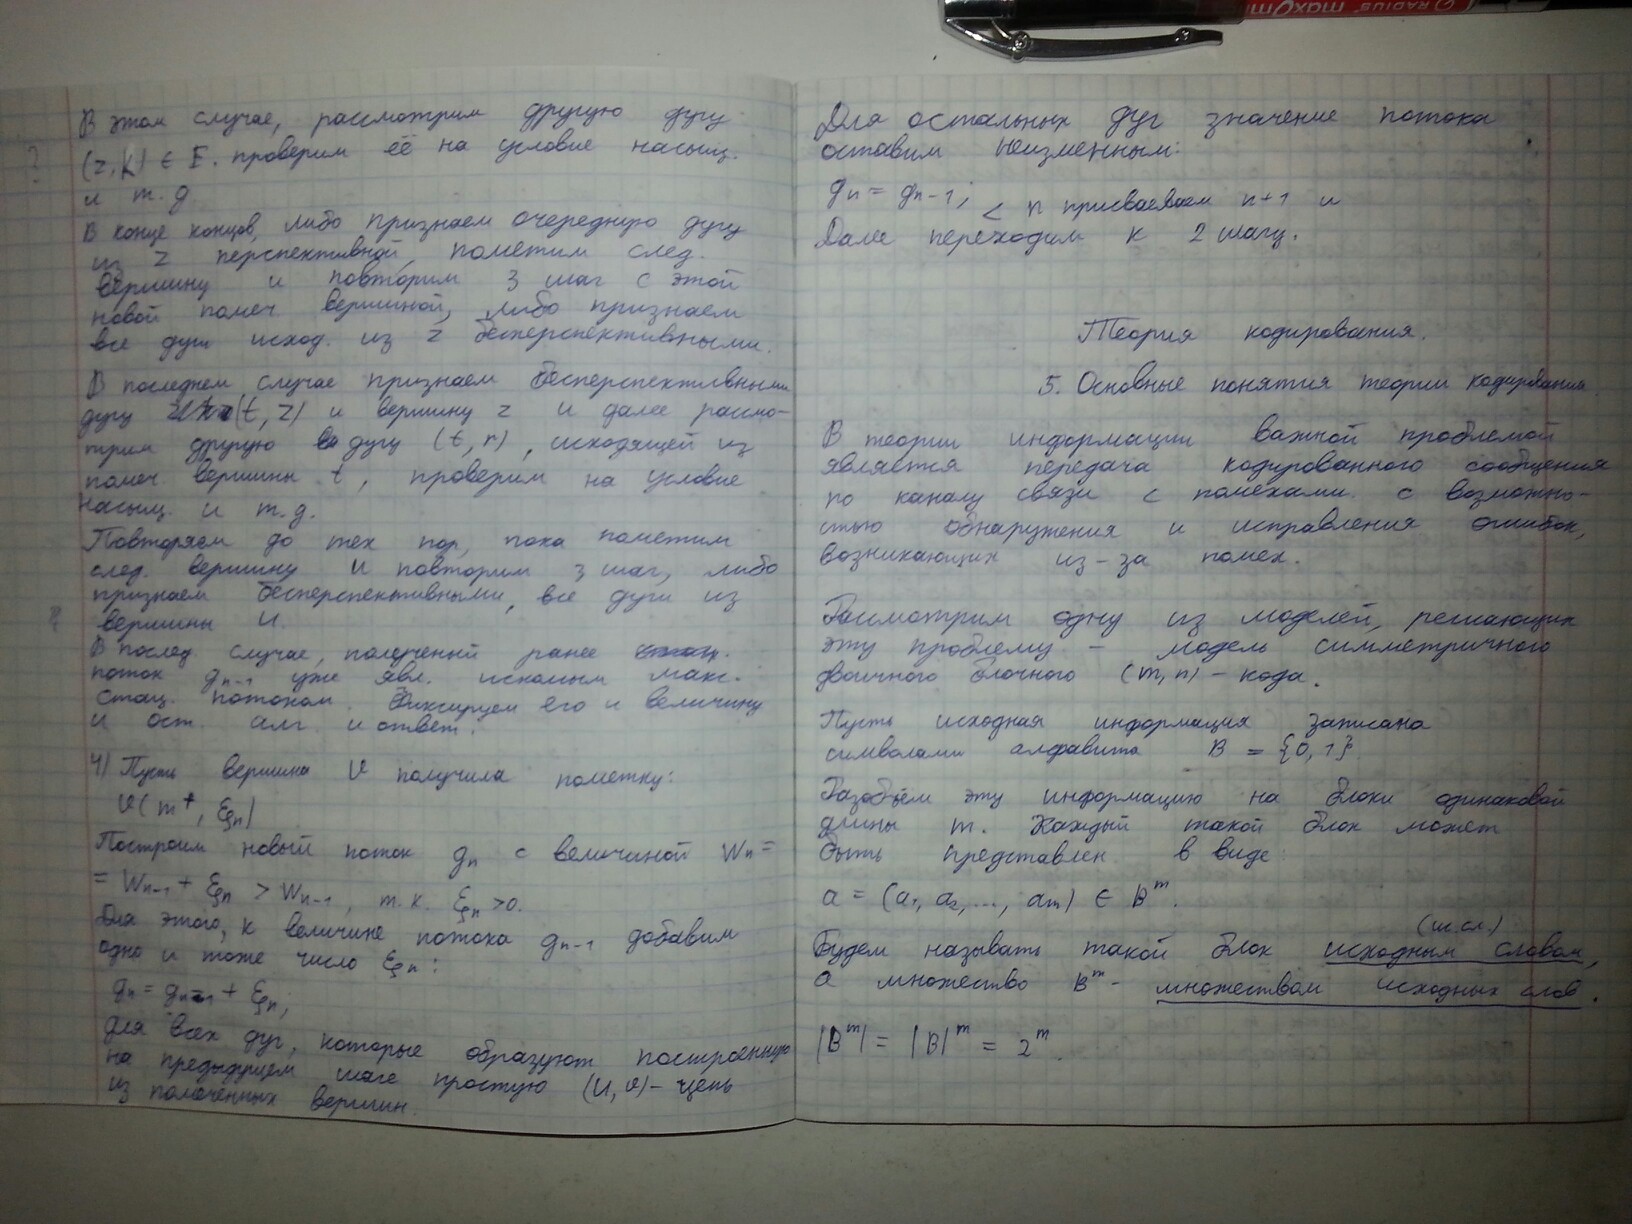 В этом случае, рассмотрим другую дугу
(z, k) ∈ E. проверим её на условие насыщ.
и т.д
В конце концов, либо признаем очередную дугу
из z перспективной, пометим след.
вершину и повторим 3 шаг с этой
новой помеч вершиной, либо признаем
все дуги исход. из z бесперспективными.
В последнем случае признаем бесперспективными
дугу (t, z) и вершину z и далее рассмо-
трим другую дугу (t, r), исходящей из
помеч вершины t, проверим на условие
насыщ. и т.д.
Повторяем до тех пор, пока пометим
след. вершину и повторим 3 шаг, либо
признаем бесперспективными, все дуги из
вершины u.
В послед. случае, полученный ранее
поток gn-1 уже явл. искомым макс.
стац. потоком. Фиксируем его и величину
и ост. алг. и ответ.
4) Пусть вершина v получила пометку:
v(m⁺, ξn)
Построим новый поток gn с величиной Wn =
= Wn-1 + ξn > Wn-1, т.к. ξn > 0.
Для этого, к величине потока gn-1 добавим
одно и тоже число ξn:
gn = gn-1 + ξn;
для всех дуг, которые образуют построенную
на предыдущем шаге простую (u, v) - цепь
из помеченных вершин.
Для остальных дуг значение потока
оставим неизменным:
gn = gn-1; < n присваеваем n+1 и
Далее переходим к 2 шагу.
Теория кодирования.
5. Основные понятия теории кодирования
В теории информации важной проблемой
является передача кодированного сообщения
по каналу связи с помехами. с возможно-
стью обнаружения и исправления ошибок,
возникающих из-за помех.
Рассмотрим одну из моделей, решающих
эту проблему - модель симметричного
двоичного блочного (m, n) - кода.
Пусть исходная информация записана
символами алфавита B = {0, 1}
Разобьём эту информацию на блоки одинаковой
длины m. Каждый такой блок может
быть представлен в виде
a = (a₁, a₂, ..., am) ∈ Bᵐ.
(и.сл.)
Будем называть такой блок исходным словом,
а множество Bᵐ - множеством исходных слов.
|Bᵐ| = |B|ᵐ = 2ᵐ.